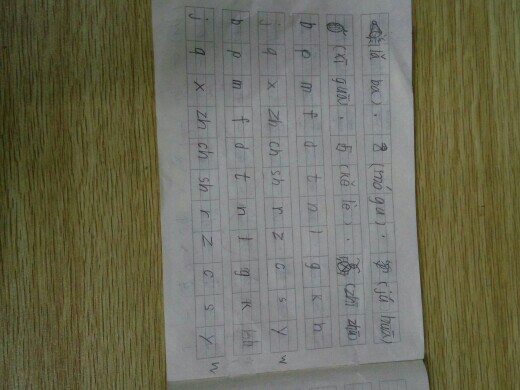 (lǎ ba)、(mó gu)、(jú huā)
(xī guā)、(kě lè)、(zhī zhū)
b p m f d t n l g k h
j q x zh ch sh r z c s y w
b p m f d t n l g k h
j q x zh ch sh r z c s y w